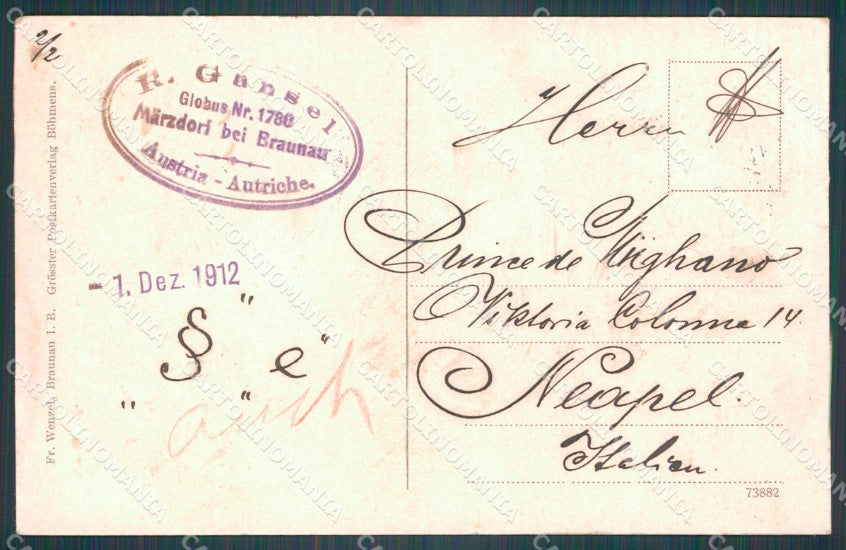 2/2
R. Gansel
Globus Nr. 1780
Märzdorf bei Braunau
Austria - Autriche.
- 1. Dez. 1912
§ " e "
" " auch
Fr. Wenzel, Braunau i. B. Grösster Postkartenverlag Böhmens.
Herrn
Prince de Mighano
Viktoria Colonna 14.
Neapel.
Italien.
73882
CARTOLINOMANIA